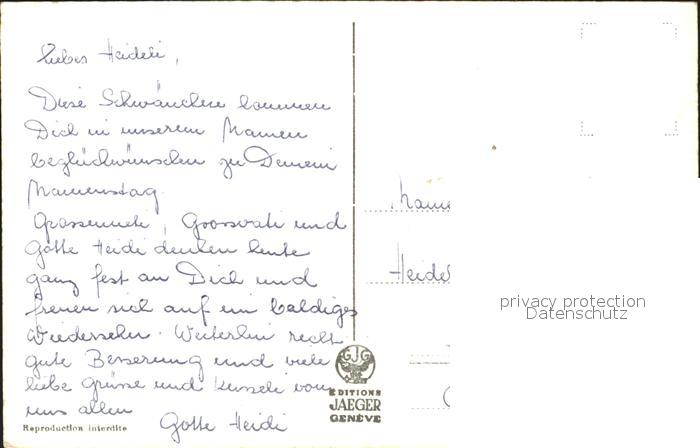 Liebes Heideli,
Diese Schwänchen kommen
Dich in unserem Namen
beglückwünschen zu Deinem
Namenstag.
Grossmueti, Grossvati und
Gotte Heidi denken heute
ganz fest an Dich und
freuen sich auf ein baldiges
Wiedersehn. Weiterhin recht
gute Besserung und viele
liebe Grüsse und Kussli von
uns allen
Gotte Heidi
Reproduction interdite
GJG
EDITIONS
JAEGER
GENÈVE
Heidel
privacy protection
Datenschutz